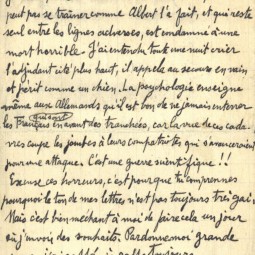 peut pas se traîner comme Albert l'a fait, et qui reste
seul entre les lignes adverses, est condamné à une
mort horrible. J'ai entendu toute une nuit crier
l'adjudant cité plus haut, il appela au secours en vain
et périt comme un chien. La psychologie enseigne
même aux Allemands qu'il est bon de ne jamais enterrer
les Français qui sont en avant des tranchées, car la vue de ces cada-
vres coupe les jambes à leurs compatriotes qui s'avanceraient
pour une attaque. C'est une guerre scientifique !!
Excuse ces horreurs, c'est pour que tu comprennes
pourquoi le ton de mes lettres n'est pas toujours très gai.
Mais c'est bien méchant à moi de faire cela un jour
où j'envoie des souhaits. Pardonne moi grande